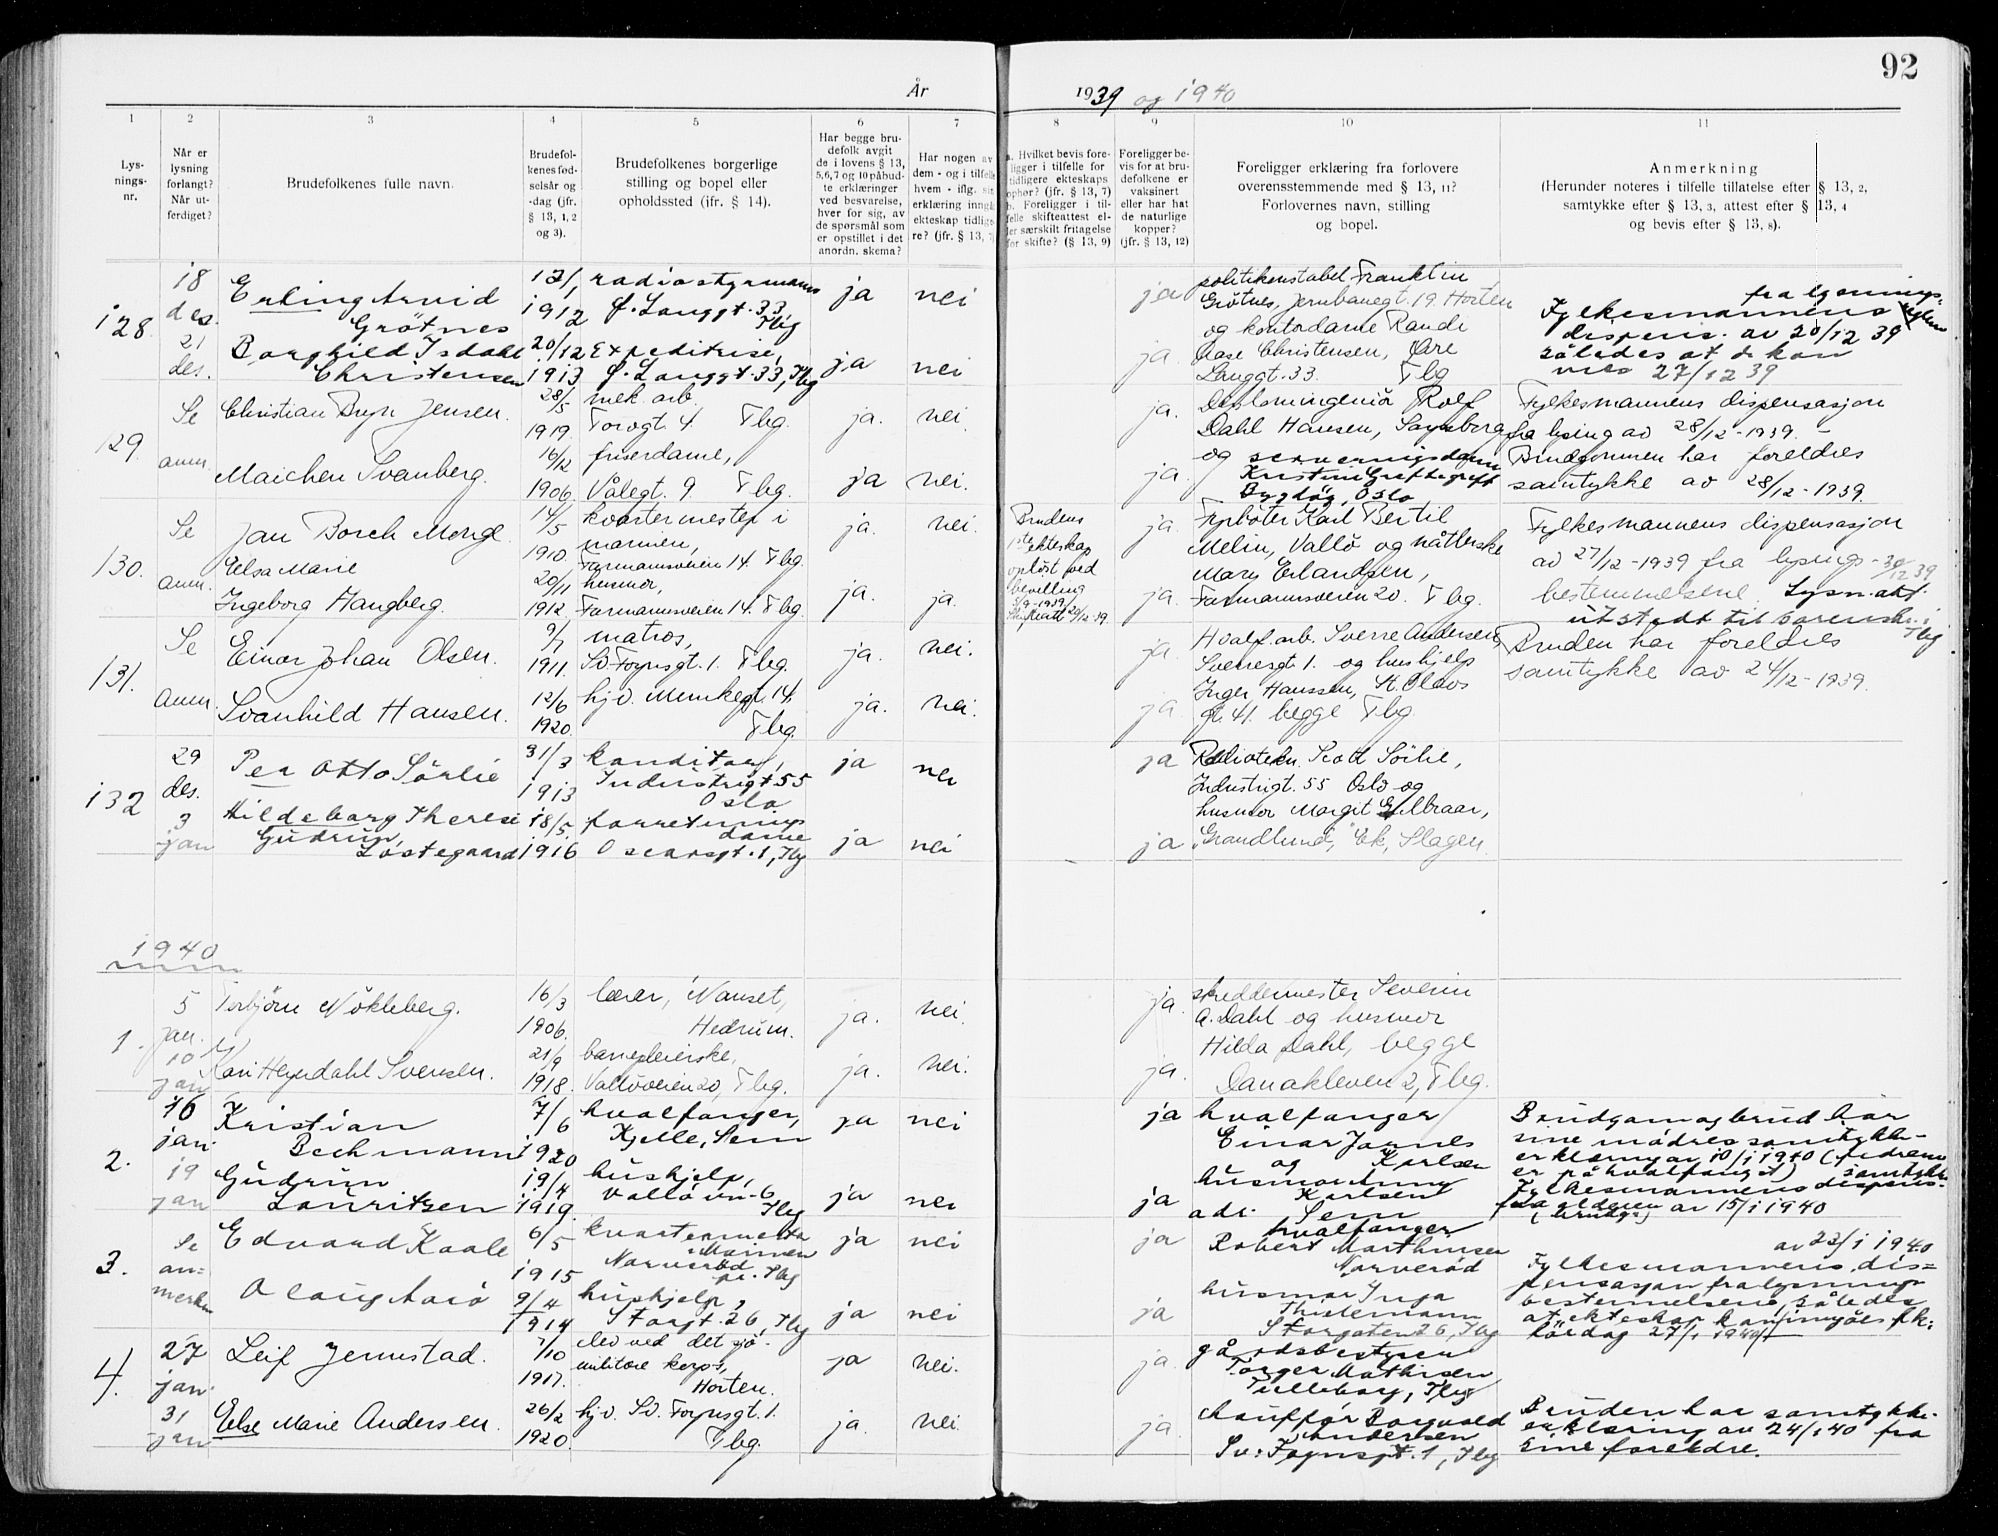 92
År 1939 og 1940
1 2 3 4 5 6 7 8 9 10 11
Lys-
nings-
nr.
Når er
lysning
forlangt?
Når ut-
ferdiget?
Brudefolkenes fulle navn.
Brudefol-
kenes fød-
selsår og
-dag (jfr.
§ 13, 1, 2
og 3).
Brudefolkenes borgerlige
stilling og bopel eller
opholdssted (jfr. § 14).
Har begge bru-
defolk avgit
de i lovens § 13,
5, 6, 7 og 10 påbud-
te erklæringer
ved besvarelse,
hver for sig, av
de spørsmål som
er opstillet i det
anordn. skema?
Har nogen av
dem - og i tilfelle
hvem - iflg. sin
erklæring inngå
ekteskap tidlige-
re? (jfr. § 13, 7)
a. Hvilket bevis fore-
ligger i tilfelle for
tidligere ekteskaps
ophør? (jfr. § 13, 7)
b. Foreligger i til-
felle skifteattest el-
ler særskilt fritagelse
for skifte? (§ 13, 9)
Foreligger be-
vis for at bru-
defolkene er
vaksinert
eller har hat
de naturlige
kopper?
(jfr. § 13, 12)
Foreligger erklæring fra forlovere
overensstemmende med § 13, 11?
Forlovernes navn, stilling
og bopel.
Anmerkning
(Herunder noteres i tilfelle tillatelse efter § 13, 2,
samtykke efter § 13, 3, attest efter § 13, 4
og bevis efter § 13, 8).
128.
18
des.
21
des.
Erling Arvid
Grötnes
Borghild Isdahl
Christensen
1912
20/12
1913
radiostyrmann
Ø. Langgt. 33,
Tbg
Expeditrise,
Ø. Langgt. 33, Tbg
ja nei
ja nei
ja
ja.
politikonstabel Franklin
Grötnes, Jernbanegt. 19. Horten
og kontordame Randi
Aase Christensen, Øvre
Langgt. 33. Tbg
fra lysnings-
Fylkesmannens
dispens. av 20/12 39
således at de kan
vies 27/12 39
129.
Se
anm.
Christian Bryn Jensen.
Maichen Svanberg.
28/5
1919.
16/12
1906.
mek. arb.
Torvgt. 4 Tbg.
friserdame,
Vålegt. 9 Tbg.
ja. nei.
ja nei.
ja.
ja
Diplomingeniör Rolf
Dahl Hansen, Sarpsborg
og serveringsdame
Kristine
Bygdöy, Oslo
Fylkesmannens dispensasjon
fra lysing av 28/12-1939.
Brudgommen har foreldres
samtykke av 28/12-1939.
130.
Se
anm.
Jan Borch Monge
Elsa Marie
Ingeborg Haugberg.
14/5
1910.
20/11
1912.
kvartermester i
marinen,
Farmannsveien 14. Tbg.
husmor,
Farmannsveien 14. Tbg.
ja. nei.
ja. ja.
Brudens
1ste ekteskap
oplöst ved
bevilling
ja.
ja.
Fyrböter Karl Bertil
Melin, Vallö og nåtterske
Mary Erlandsen,
Farmannsveien 20. Tbg.
Fylkesmannens dispensasjon
av 27/12-1939 fra lysings-
30/12 39
bestemmelsene Lysn.att.
utstedt til sorenskr. i
Tbg
131.
Se
anm.
Einar Johan Olsen.
Svanhild Hansen.
1911.
12/6
1920.
matros,
Sv. Foynsgt. 1. Tbg.
hj.d. Munkegt. 14.
Tbg.
ja. nei.
ja. nei.
ja.
ja
Hvalf. arb. Sverre Andersen,
Sverresgt. 1. og hushjelp
Inger Hanssen, St. Olavs
gt. 41. begge Tbg.
Bruden har foreldres
samtykke av 24/12-1939.
132
29
des.
3
jan
Per Otto Sörlie
Hildeborg Therese
Gudrun
Löstegaard
31/3
1913
18/5.
1916
konditor,
Industrigt. 55
Oslo
forretnings
dame
Oscarsgt. 1, Tbg
ja nei
ja nei
ja
ja
Industrigt. 55 Oslo og
husmor Margit
"Grandlund," Ek, Slagen.
1940
1.
5
jan.
10
jan
Torbjörn Nökleberg.
Kari Heyerdahl Svensen.
16/3
1906.
21/9
1918.
lærer, Nanset,
Hedrum.
barnepleierske,
Vallöveien 20, Tbg.
ja. nei.
ja. nei.
ja
ja.
skreddermester Severin
A. Dahl og husmor
Hilda Dahl, begge
Danakleven 2, Tbg.
2.
16
jan.
19
jan
Kristian
Bechmann
Gudrun
Lauritzen
7/6
1920
19/4
1919.
hvalfanger,
Kjelle, Sem
hushjelp,
Vallö vn. 6,
Tbg
ja nei
ja nei
ja
ja
hvalfanger
Einar Jarnes
og Karlsen
husmor
Karlsen
adr. Sem
Brudgom og brud har
sine mödres samtykke-
erklæring av 10/1 1940 (fedrene
er på hvalfangst)
Fylkesmannens dispens.
fra alderen av 15/1 1940
3.
Se
an=
merkn
Edvard Kaale
Olaug Aarö
6/5
1915
9/4
1914
kvartermester
i Marinen
Narveröd
pr. Tbg
hushjelp,
Storgt. 26, Tbg
ja nei
ja nei
ja
ja
hvalfanger
Robert Marthinsen
Narveröd
husmor Inga
Thielemann
Storgaten 26, Tbg
av 23/1 1940
Fylkesmannens dis=
pensasjon fra lysnings
bestemmelsene, således
at ekteskap kan inngåes f.k.
lördag 27/1 1940
4.
27
jan.
31
jan
Leif Jernstad.
Else Marie Andersen.
7/10
1917.
26/2
1920.
elev ved det sjö-
militære korps,
Horten.
hj.d. Sv. Foynsgt. 1.
Tbg.
ja nei.
ja. nei.
ja.
ja.
gårdsbestyrer
Torger Mathisen
Tbg
chaufför Borgvald
Andersen
Sv. Foynsgt. 1, Tbg
Bruden har samtykke-
erklæring av 24/1 40 fra
sine foreldre.